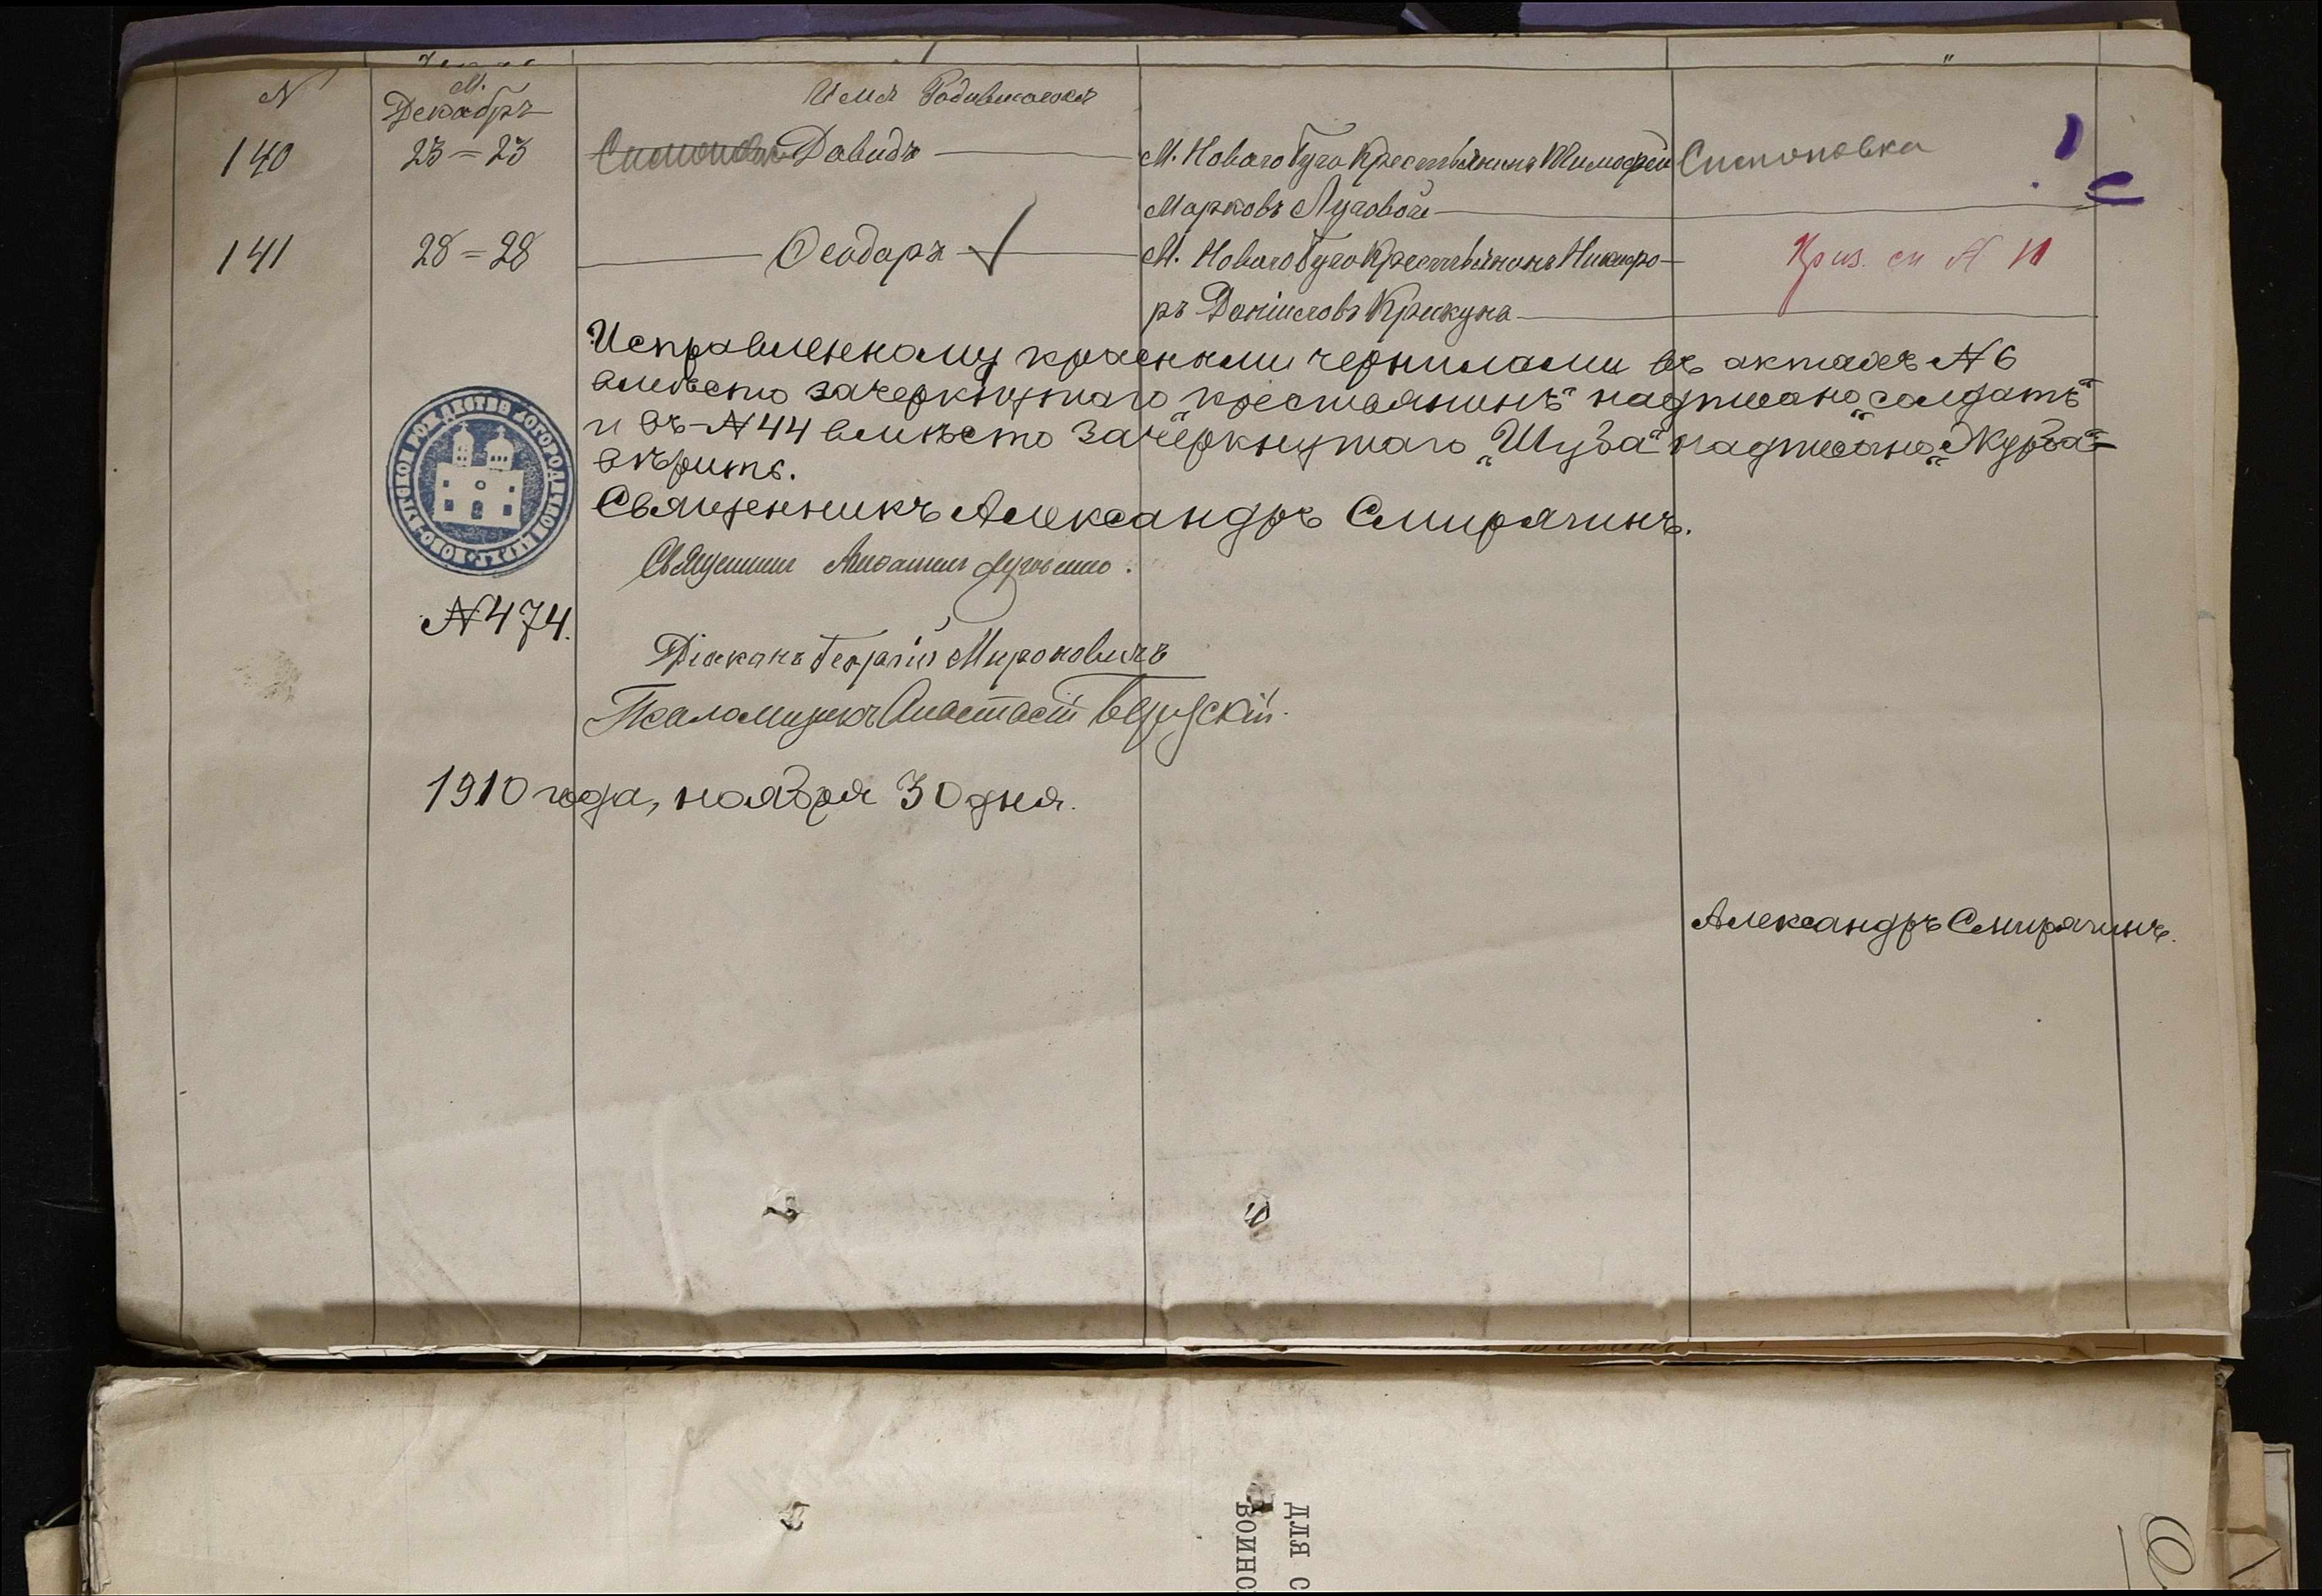 N М. Декабрь Имя Родившагося "
140 23=23 Симоновка Давидъ М. Новаго Буга Крестьянинъ Тимофей Симоновка
Марковъ Луговой
141 28=28 Ѳеодоръ М. Новаго Буга Крестьянинъ Никифо-
ръ Даніиловъ Крикуна
Исправленному красными чернилами въ актахъ N 6
вмѣсто зачеркнутаго „крестьянинъ“ надписано „солдатъ“
и въ N 44 вмѣсто зачеркнутаго „Шуба“ надписано „Журба“
вѣрить.
Священникъ Александръ Смирягинъ.
Священникъ
N 474.
Діаконъ Георгій Мироновичъ
Псаломщикъ Анастасій
1910 года, ноября 30 дня.
Александръ Смирягинъ.
ДЛЯ С
ВОИНС